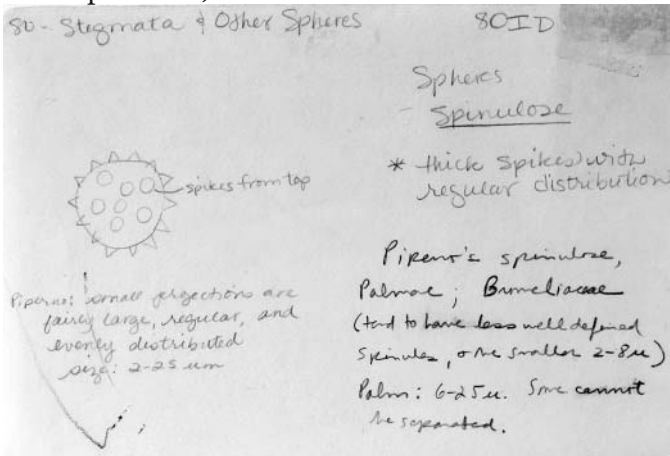 80 - Stegmata & Other Spheres
80ID
Spheres
- Spinulose
* thick spikes with
regular distribution
spikes from top
Piperno: small projections are
fairly large, regular, and
evenly distributed
size: 2-25 um
spinulose,
Palmae; Bromeliaceae
(tend to have less well defined
spinules, are smaller 2-8µ)
Palm: 6-25µ. Some cannot
be separated.